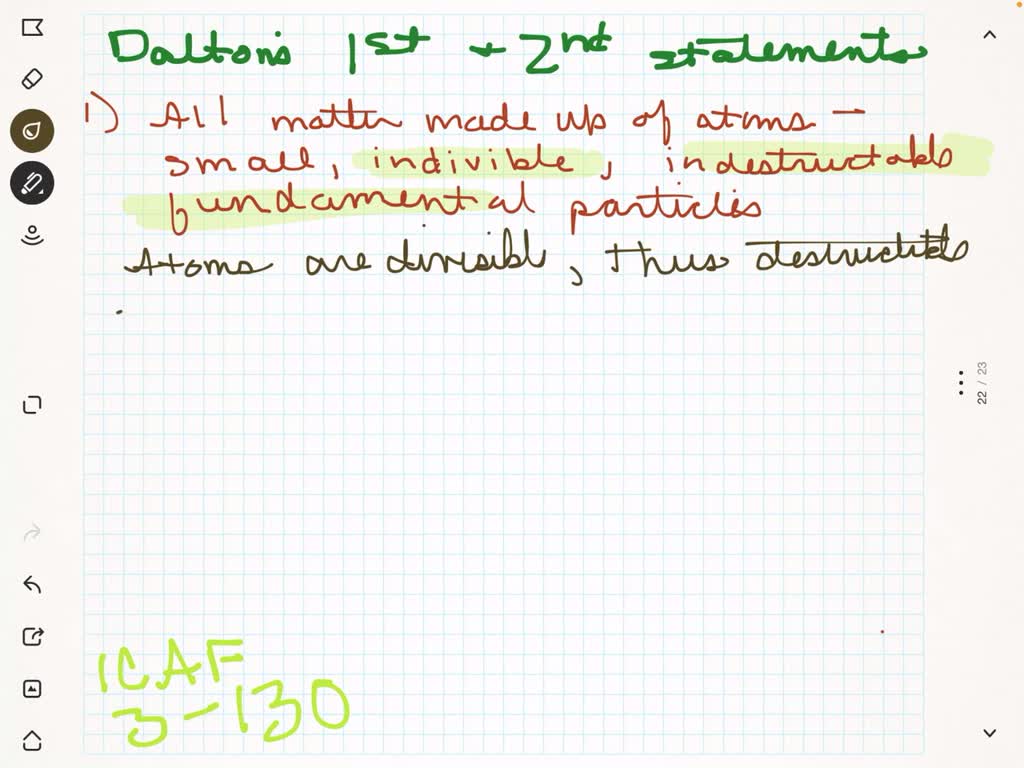 Dalton's 1st + 2nd statements
1) All matter made up of atoms -
small, indivible, indestructable
fundamental particles
Atoms are divisible, thus destructible
22 / 23
ICAF
3-130